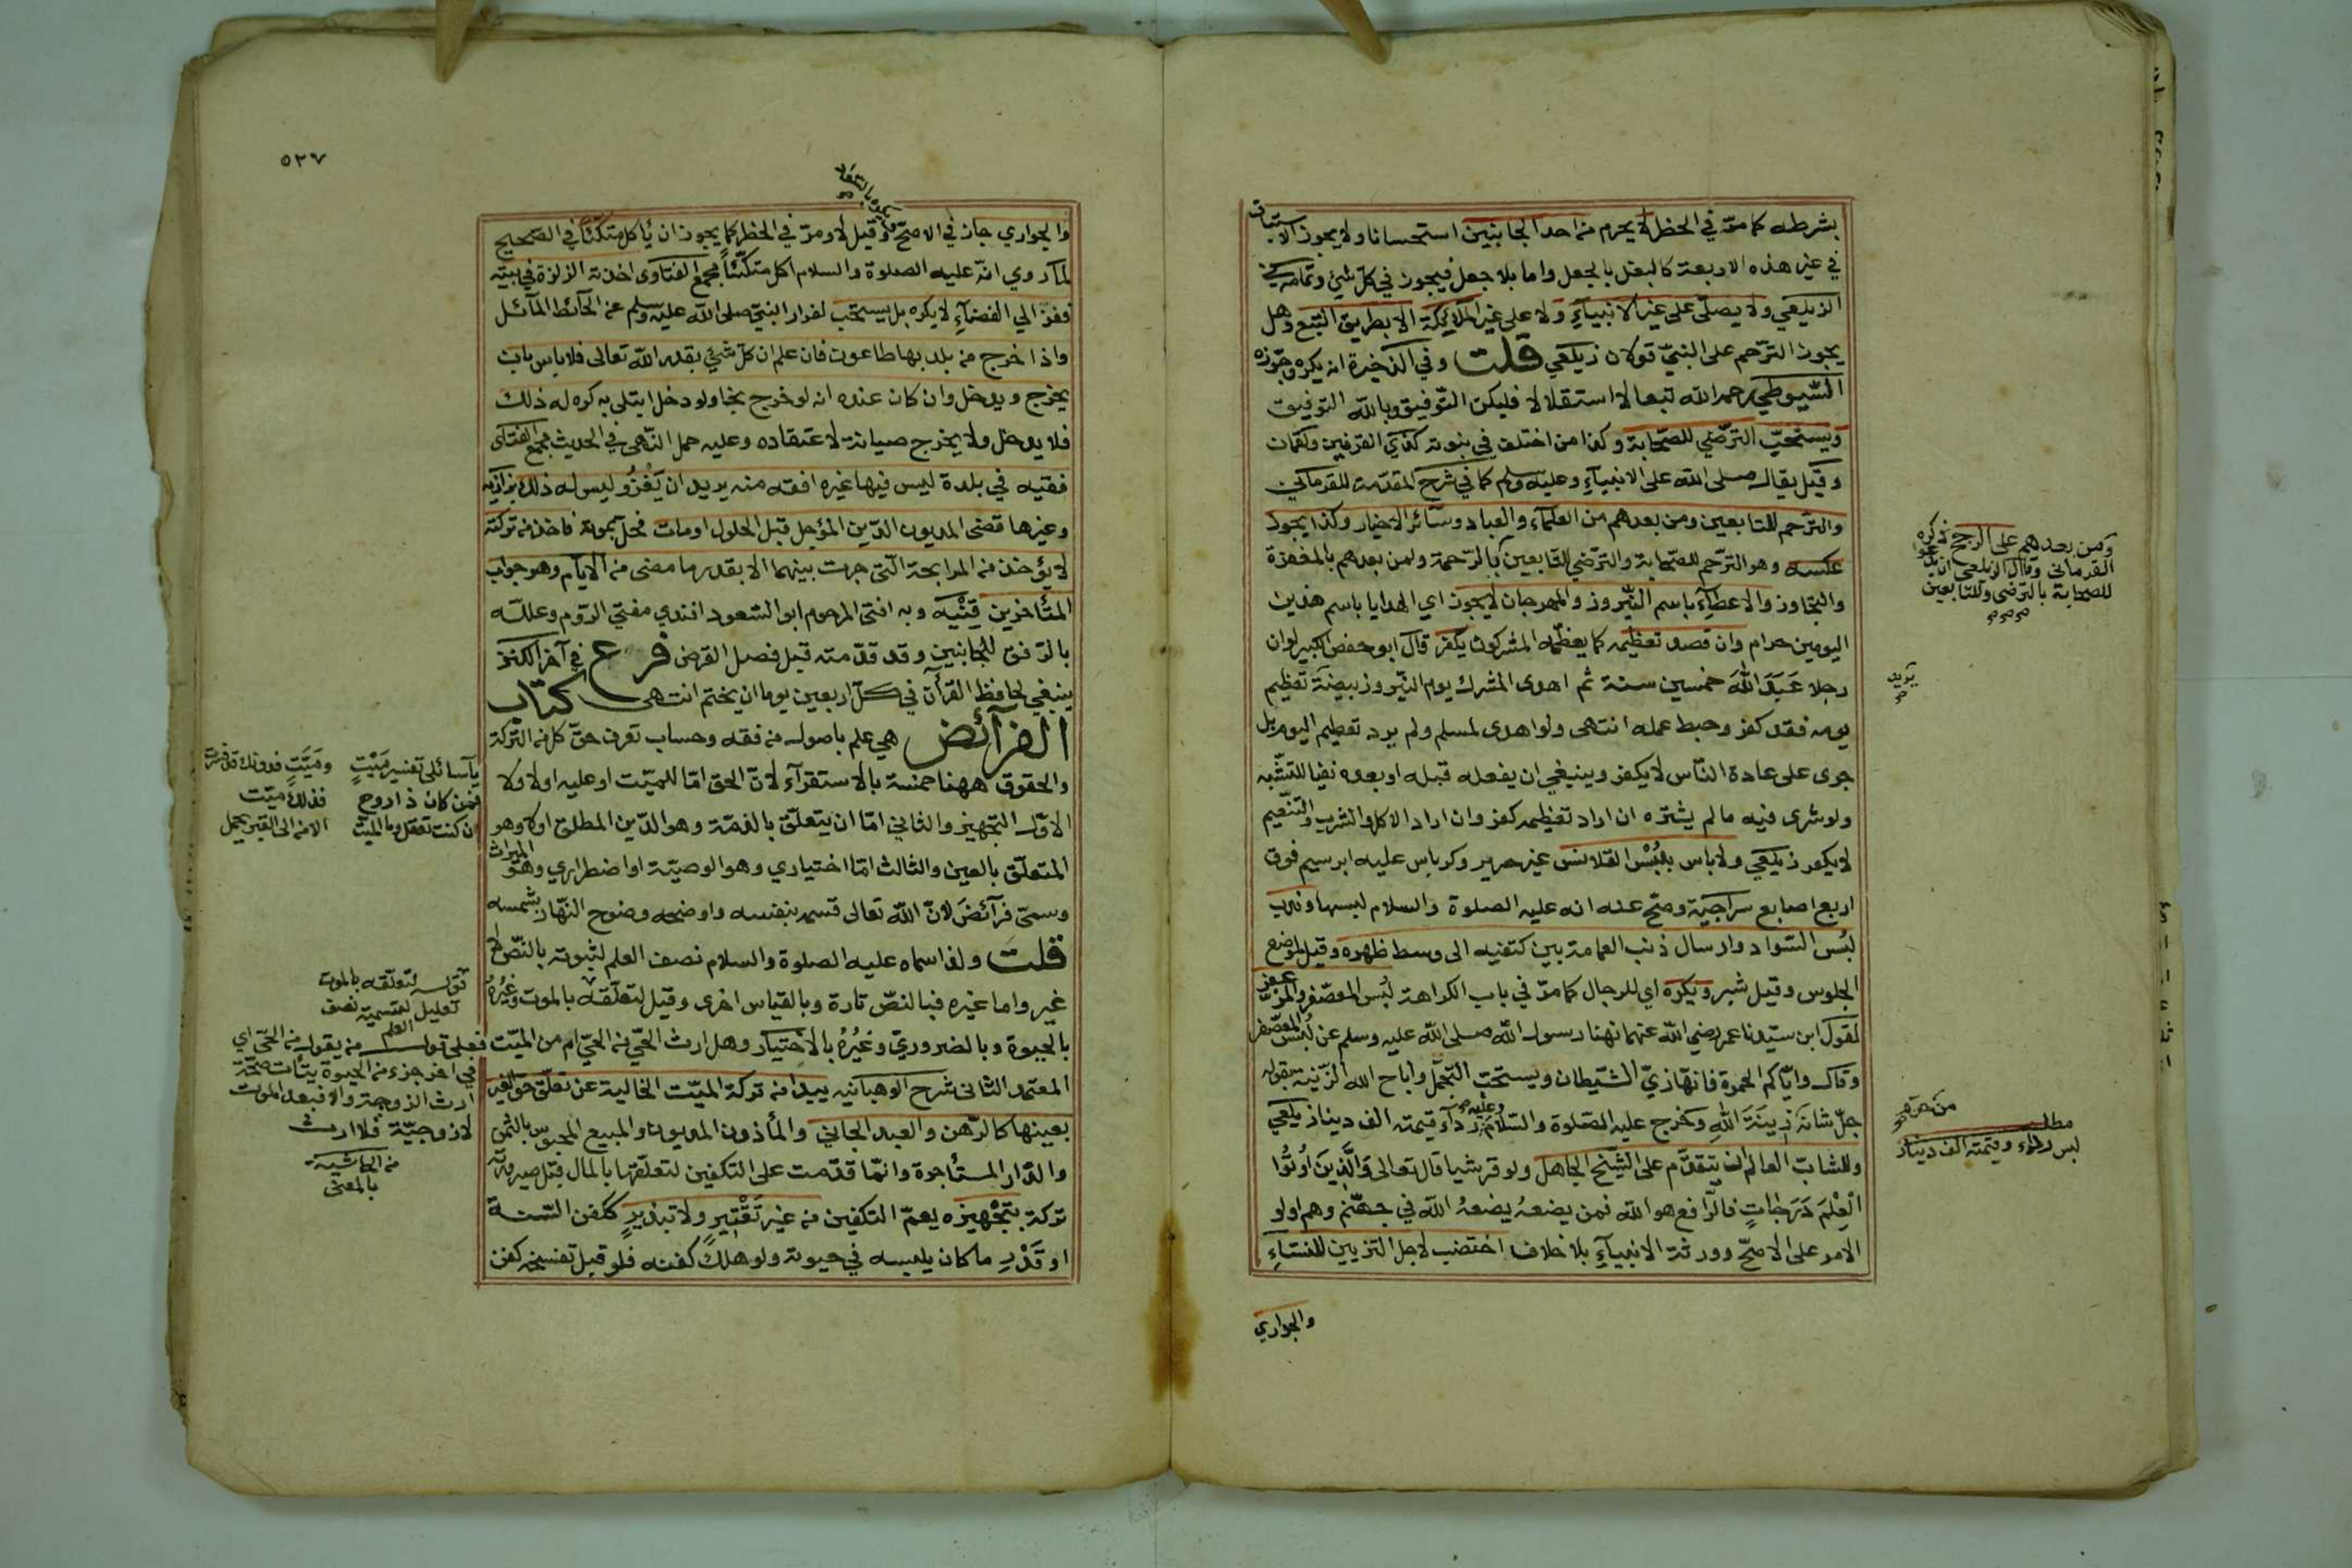 بشرطه كما مرّ في الحظر لا يحرم من احد الجانبين استحسانا ولا يجوز الاستباق
في غير هذه الاربعة كالبغل بالجعل واما بلا جعل فيجوز في كل شيئ وتمامه في
الزيلعي ولا يصلّى على غير الانبياءِ ولا على غير الملائكة الا بطريق التبع وهل
يجوز الترحم على النبيّ قولان زيلعي قلت وفي الذخيرة انه يكره وجوّزه
السّيوطي رحمه الله تبعا لا استقلالا فليكن التّوفيق وبالله التوفيق
ويستحبّ الترّضي للصّحابة وكذا من اختلف في نبوته كذي القرنين ولقمان
وقيل يقال صلى الله على الانبياءِ وعليه وسلم كما في شرح المقدّمة للقرماني
والترّحم للتابعين ومن بعدهم من العلماءِ والعباد وسائر الاخيار وكذا يجوز
عكسه وهو الترّحم للصّحابة والترّضي للتّابعين بالرّحمة ولمن بعدهم بالمغفرة
والتجاوز والاعطاءِ باسم النّيروز والمهرجان لا يجوز اي الهدايا باسم هذين
اليومين حرام وان قصد تعظيمه كما يعظّمه المشركون يكفر قال ابو حفص الكبير لو ان
رجلا عَبَدَ اللهَ خمسين سنة ثم اهدى المشرك يوم النّيروز بيضة تعظيم
يومه فقد كفر وحبط عمله انتهى ولو اهدى لمسلم ولم يرد تعظيم اليوم بل
جرى على عادة النّاس لا يكفر وينبغي ان يفعله قبله او بعده نفيا للتشّبه
ولو شرى فيه ما لم يشتره ان اراد تعظيمه كفر وان اراد الاكل والشرب والتّنعيم
لا يكفر زيلعي ولا باس بلُبْس القلانس غير حرير وكرباس عليه ابرسيم فوق
اربع اصابع سراجيّة وصحّ عنه انه عليه الصلوة والسلام لبسها وندب
لبُس السّواد وارسال ذنب العمامة بين كتفيه الى وسط ظهره وقيل لموضع
الجلوس وقيل شبر ويكره اي للرجال كما مرّ في باب الكراهة لبُس المعصفر والمزعفر
لقول ابن سيّدنا عمر رضي الله عنهما نهنا رسول الله صلى الله عليه وسلم عن لبُس المعصفر
وقال وايّاكم الحمرة فانها زيّ الشّيطان ويستحبّ التّجمّل واباح الله الزّينة بقوله
جلّ شانه زينَةَ اللهِ وخرج عليه الصّلوة والسّلام وعليه رداء قيمته الف دينار زيلعي
وللشابّ العالم ان يتقدّم على الشّيخ الجاهل ولو قرشيا قال تعالى وَالَّذِينَ اُوتُوا
الْعِلْمَ دَرَجَاتٍ فالرّافع هو الله فمن يضعهُ يضعهُ الله في جهنّم وهم اولو
الامر على الاصحّ وورثة الانبياءِ بلا خلاف اختضب لاجل التزيين للنساءِ
والجواري
ومن بعدهم على الراجح ذكره
القرماني وقال الزيلعي ان يدعوا
للصحابة بالترّضي وللتابعين
يريد
مطلب
لبس رداء وقيمته الف دينار
٥٢٧
والجواري جاز في الاصحّ وقيل لا ومرّ في الحظر كما يجوز ان يأكل متكئا في الصّحيح
لما روي انّه عليه الصلوة والسلام اكل متكّئاً مجمع الفتاوى اخذته الزلزلة في بيته
ففرّ الي الفضاءِ لا يكره بل يستحّب لفرار النبيّ صلى الله عليه وسلم عن الحائط المائل
واذا خرج من بلد بها طاعون فان علم ان كلّ شيئ بقدر الله تعالى فلا باس بان
يخرج ويدخل وان كان عنده انه لو خرج نجا ولو دخل ابتلى به كره له ذلك
فلا يدخل ولا يخرج صيانة لاعتقاده وعليه حمل النّهي في الحديث مجمع الفتاوى
فقيه في بلدة ليس فيها غيره افقه منه يريد ان يَغْزُو ليس له ذلك بزازيه
وغيرها قضى المديون الدّين المؤجل قبل الحلول او مات فحلّ بموته فاخذ من تركته
لا يؤخذ من المرابحة الّتي جرت بينهما الا بقدر ما مضى من الايّام وهو جواب
المتأخرين قِنْيه وبه افتى المرحوم ابو السّعود افندي مفتي الرّوم وعللّه
بالرّفق للجانبين وقد قدّمته قبل فصل القرض فرع في آخر الكنز
ينبغي لحافظ القرآن في كلّ اربعين يوما ان يختم انتهى كتاب
الفرائض هي علم باصول من فقه وحساب تعرف حقّ كل من التركة
والحقوق ههنا خمسة بالاستقرآء لانّ الحق امّا للميّت او عليه او لا ولا
الاوّل التّجهيز والثاني امّا ان يتعلّق بالذمّة وهو الدّين المطلق او لا وهو
المتعلّق بالعين والثالث امّا اختياري وهو الوصيّة او اضطراري وهو الميراث
وسمىّ فرآئضَ لانّ الله تعالى قسمه بنفسه واوضحه وضوح النّهار بشمسه
قلت ولذا سماه عليه الصلوة والسلام نصف العلم لثبوته بالنّصّ لا
غير واما غيره فبالنصّ تارة وبالقياس اخرى وقيل لتعلّقه بالموت وغيُرُه
بالحيوة وبالضروريّ وغَيْرُهُ بالاختيار وهل ارث الحّيّ من الحيّ ام من الميّت
المعتمد الثانى شرح الوهبانيه يبدا من تركة الميّت الخالية عن تعلّق حقّ الغير
بعينها كالرّهن والعبد الجاني والمأذون المديون والمبيع المحبوس بالثمن
والدّار المستأجرة وانمّا قدّمت على التكفين لتعلّقها بالمال قبل صيرورته
تركة بتجْهيزه يعمّ التكفين من غير تَقْتيرٍ ولا تبذيرٍ ككفن السّنة
او قَدْرِ ما كان يلبسه في حيوته ولو هلكَ كفنه فلو قبل تفسخه كفن
يا سائلى تفسير مَيْتٍ ومَيّتٍ
فمن كان ذا روح فذلك ميّت
قوله لتعلّقه بالموت
تعليل لتسميته نصف
العلم
فعلى قول من يقول من الحّي اي
في اخر جزء من الحيوة
ارث الزوجة والا فبعد الموت
لا زوجيّة فلا ارث
من الحاشية
بالمعنى